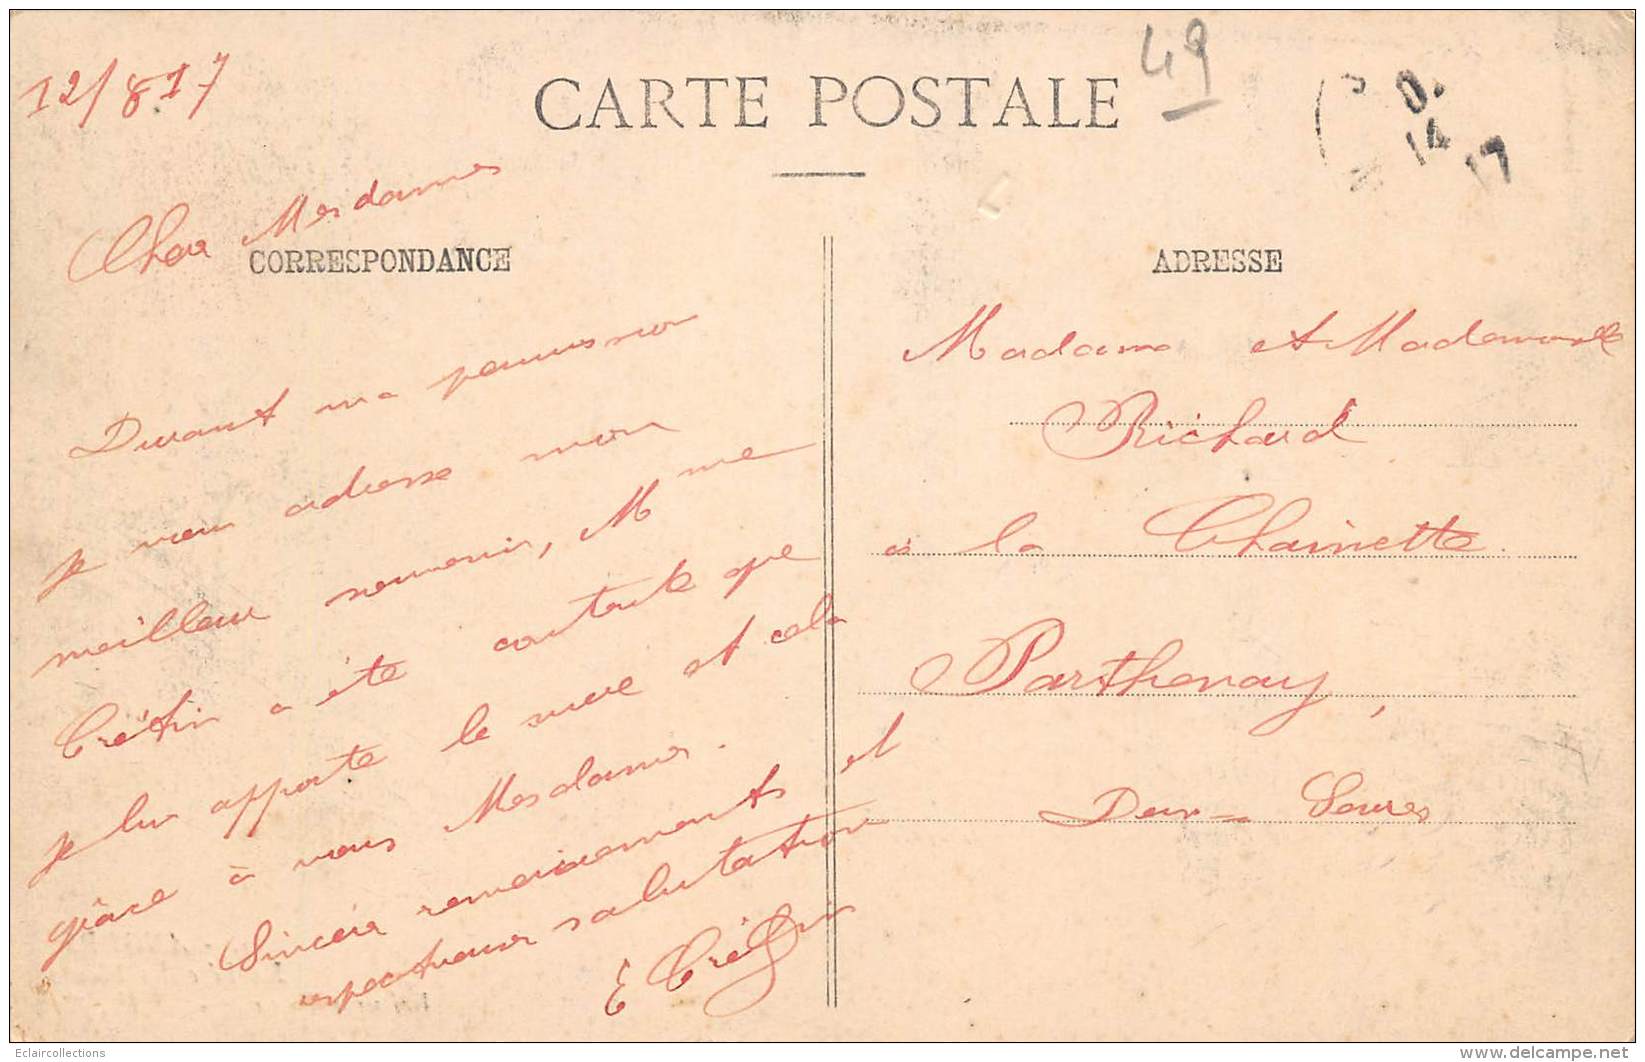 12/8 17
CARTE POSTALE
49
D.
14
17
Cher Mesdames
CORRESPONDANCE
Durant ma permission
je vous adresse mon
meilleur souvenir, Mme
Crétin a été contente que
je lui apporte le sucre et cela
grâce à vous Mesdames.
Sincère remerciements et
respectueuse salutation
E Crétin
ADRESSE
Madame et Mademoiselle
Richard
à la Chainette
Parthenay,
Deux=Sevres
Eclaircollections
www.delcampe.net